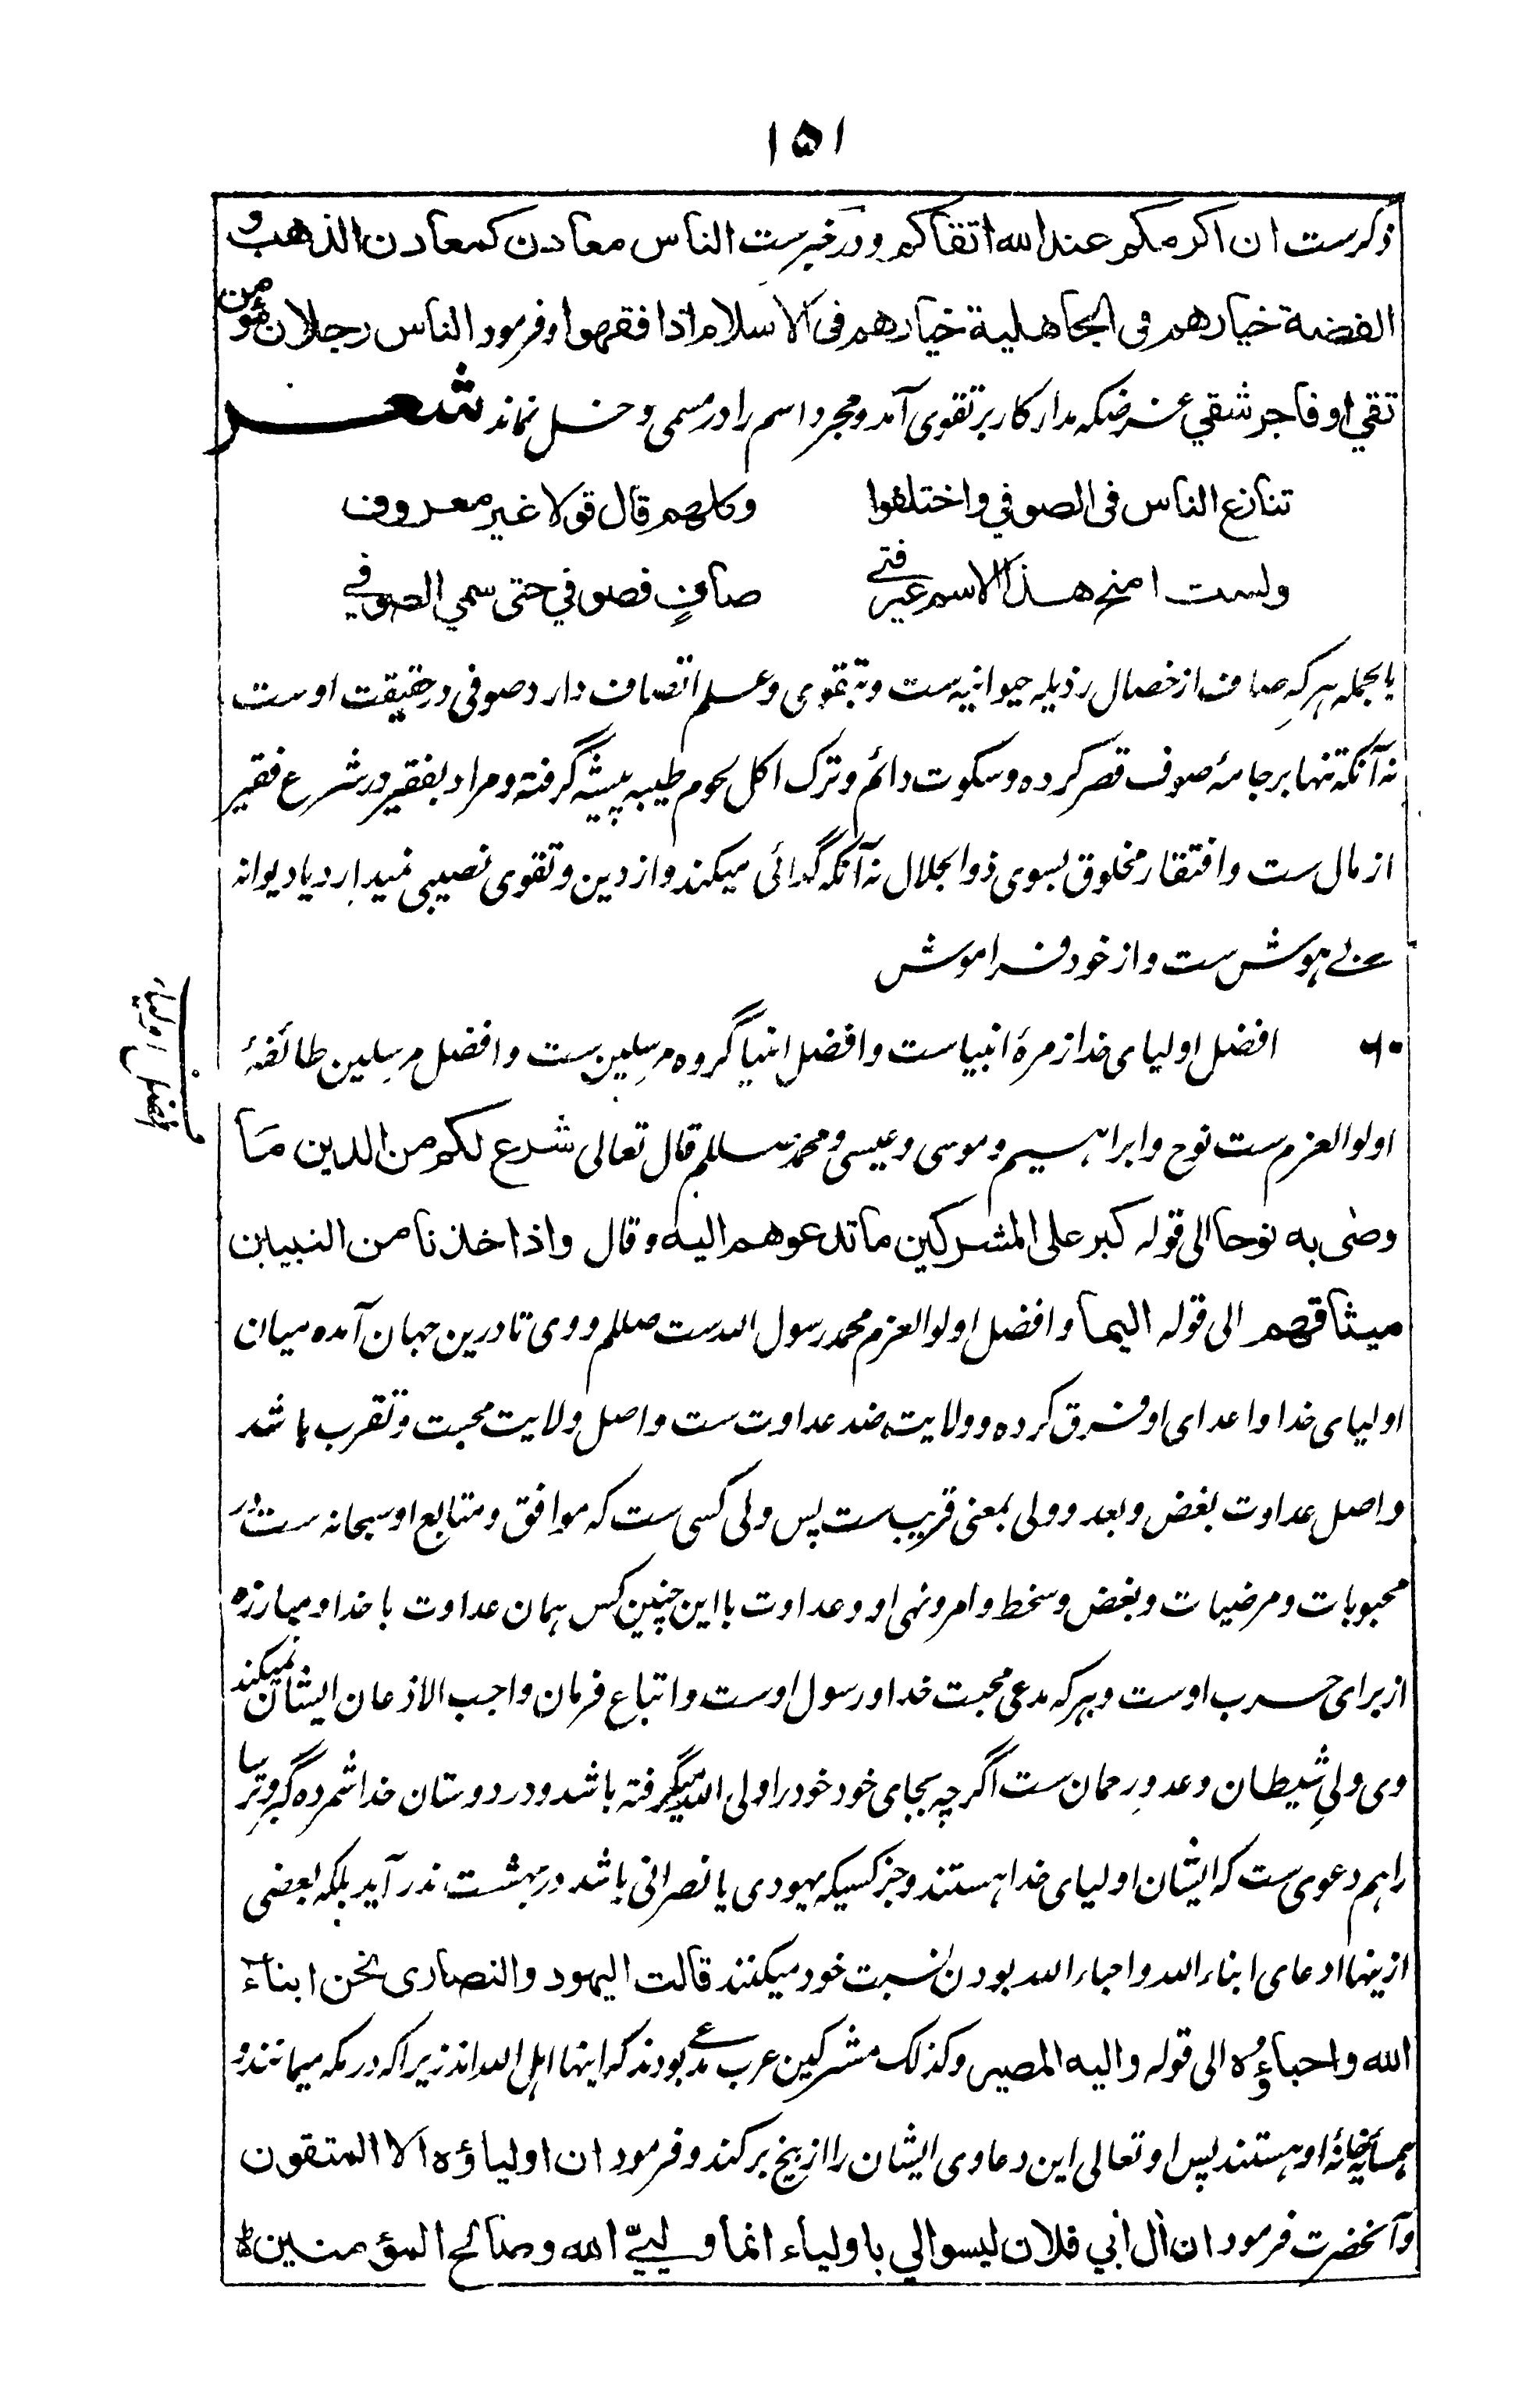 ۱۵۱
ذکرست ان اکرمکم عند الله اتقاکم و در خبرست الناس معادن کمعادن الذهب و
الفضة خیارهم فی الجاهلیة خیارهم فی الاسلام اذا فقهوا و فرمود الناس رجلان مؤمن
تقي او فاجر شقي غرضکه مدار کار بر تقوی آمد و مجرد اسم را در مسمی دخل نماند شعر
تنازع الناس فی الصوفي واختلفوا وکلهم قال قولا غیر معروف
ولست امنح هذا الاسم غیر فتی صافٍ فصوفي حتی سمي الصوفي
بالجمله هر که صاف از خصال رذیله حیوانیه ست و بتقوی و علم اتصاف دارد صوفی در حقیقت اوست
نه آنکه تنها بر جامهٔ صوف قصر کرده و سکوت دائم و ترک اکل لحوم طیبه پیشه گرفته و مراد بفقیر در شرع فقیر
از مال ست و افتقار مخلوق بسوی ذوالجلال نه آنکه گدائی میکند و از دین و تقوی نصیبی نمیدارد یا دیوانه
بی هوش ست و از خود فراموش
۶۰ افضل اولیای خدا زمرهٔ انبیاست و افضل انبیا گروه مرسلین ست و افضل مرسلین طائفهٔ
افضل اولیاء
اولوالعزم ست نوح و ابراهیم و موسی و عیسی و محمد صللم قال تعالی شرع لکم من الدین ما
وصٰی به نوحا الی قوله کبر علی المشرکین ما تدعوهم الیه و قال واذا خذنا من النبیین
میثاقهم الی قوله الیما و افضل اولوالعزم محمد رسول الله ست صللم و وی تا درین جهان آمده میان
اولیای خدا و اعدای او فرق کرده و ولایت ضد عداوت ست و اصل ولایت محبت و تقرب باشد
و اصل عداوت بغض و بعد و ولی بمعنی قریب ست پس ولی کسی ست که موافق و متابع او سبحانه ست در
محبوبات و مرضیات و بغض و سخط و امر و نهی او و عداوت با این چنین کس همان عداوت با خدا و مبارزه
از برای حرب اوست و هر که مدعی محبت خدا و رسول اوست و اتباع فرمان واجب الاذعان ایشان نمیکند
وی ولیِ شیطان و عدوِ رحمان ست اگرچه بجای خود خود را ولی الله میگرفته باشد و در دوستان خدا شمرده گبر و ترسا
را هم دعوی ست که ایشان اولیای خدا هستند و جز کسیکه یهودی یا نصرانی باشد در بهشت ندر آید بلکه بعضی
ازینها ادعای ابناء الله و احباء الله بودن نسبت خود میکنند قالت الیهود والنصاری نحن ابناءُ
الله واحباؤه الی قوله والیه المصیر و کذلک مشرکین عرب مدعی بودند که اینها اهل الله اند زیرا که در مکه میمانند و
همسایهٔ خانهٔ او هستند پس او تعالی این دعاوی ایشان را از بیخ برکند و فرمود ان اولیاؤه الا المتقون
و آنحضرت فرمود ان آل أبي فلان لیسوا لي باولیاء انما ولییّ الله وصالح المؤمنین